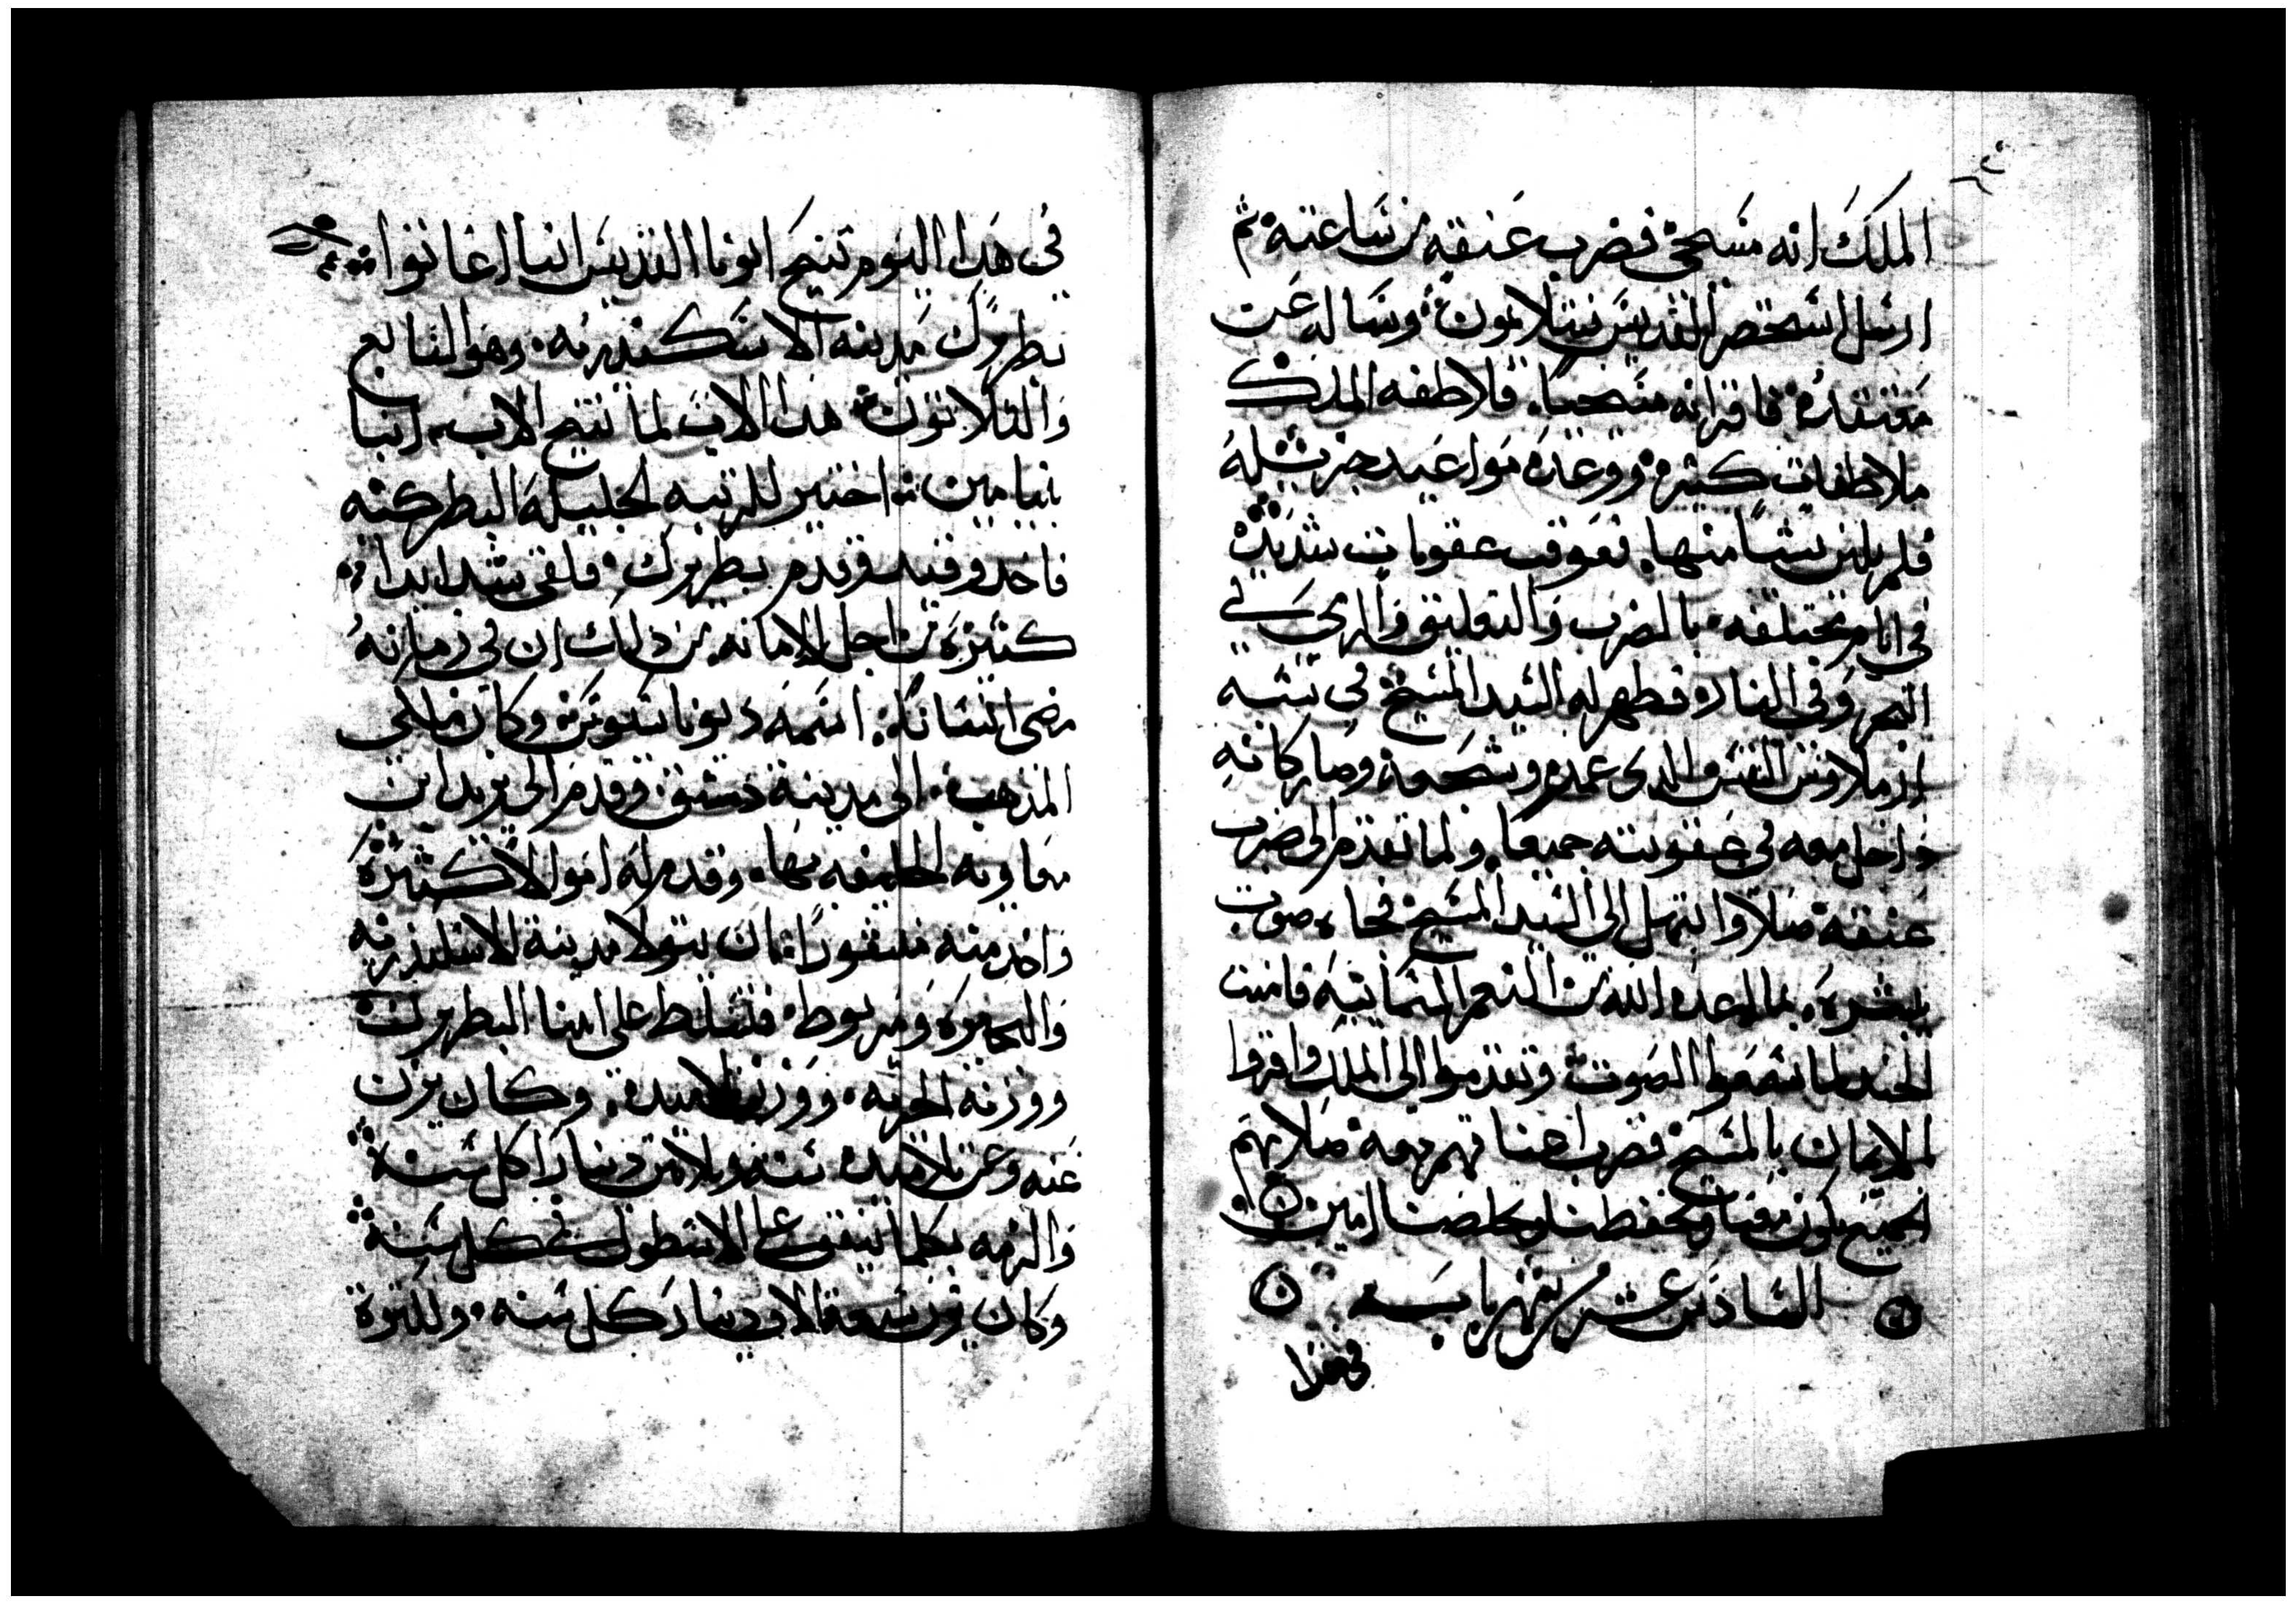 الملك انه مسيحى فضرب عنقه من ساعته ثم
ارسل استحضر القديس بنتلايمون وساله عن
معتقده فاقر انه مسيحيا. فلاطفه الملك
ملاطفات كثيره ووعده مواعيد جزيله
فلم يلن بشيا منها. فعوقب عقوبات شديده
في ايام مختلفه بالضرب والتعليق والرمي في
البحر وفي النار فظهر له السيد المسيح في شبه
ارملاوس القس الدى عمده وشجعه وصار كانه
داخل معه في عقوبته جميعا. ولما تقدم الى ضرب
عنقه صلا وابتهل الى السيد المسيح فجاه صوت
يبشره. بما اعده الله من النعم السمائيه فامنت
الجند لما سمعوا الصوت وتقدموا الى الملك واقروا
بالايمان بالمسيح فضرب اعناقهم معه صلاتهم
الجميع تكون معنا وتحفظنا وتخلصنا امين
السادس عشر من شهر بابه
في هدا
في هدا اليوم تنيح ابونا القديس انبا اغاتوا
بطريرك مدينه الاسكندريه. وهو التاسع
والتلاتون هدا الاب لما تنيح الاب انبا
بنيامين اختير للرتبه الجليله البطركيه
فاخد وقيد وقدم بطريرك. فلقى شدايدا
كثيره من اجل الامانه. من دلك ان في زمانه
مضى انسانا. اسمه تاودسيوس وكان ملكى
المدهب. الى مدينة دمشق وقدم الى يزيد ابن
معاويه الخليفه بها. وقدم له اموالا كثيره
واخد منه منشورا بان يتولا مدينة الاسكندريه
والبحيره ومريوط. فتسلط على ابينا البطريرك
ووزنه الجزيه. ووزن تلاميده. وكان يزن
عنه وعن تلاميده سته وتلاتين دينارا كل سنه
والزمه بكلما ينفق على الاسطول في كل سنه
وكان يزن سبعة الاف دينار كل سنه. ولكثرة